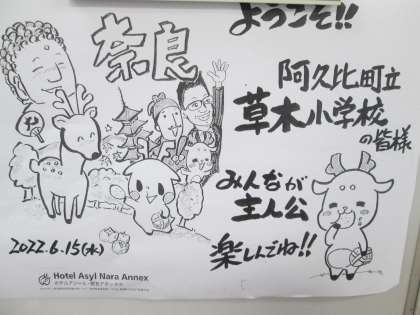 ようこそ!!
奈良
阿久比町立
草木小学校
の皆様
みんなが
主人公
楽しんでね!!
2022.6.15(水)
Hotel Asyl Nara Annex
ホテルアジール・奈良アネックス